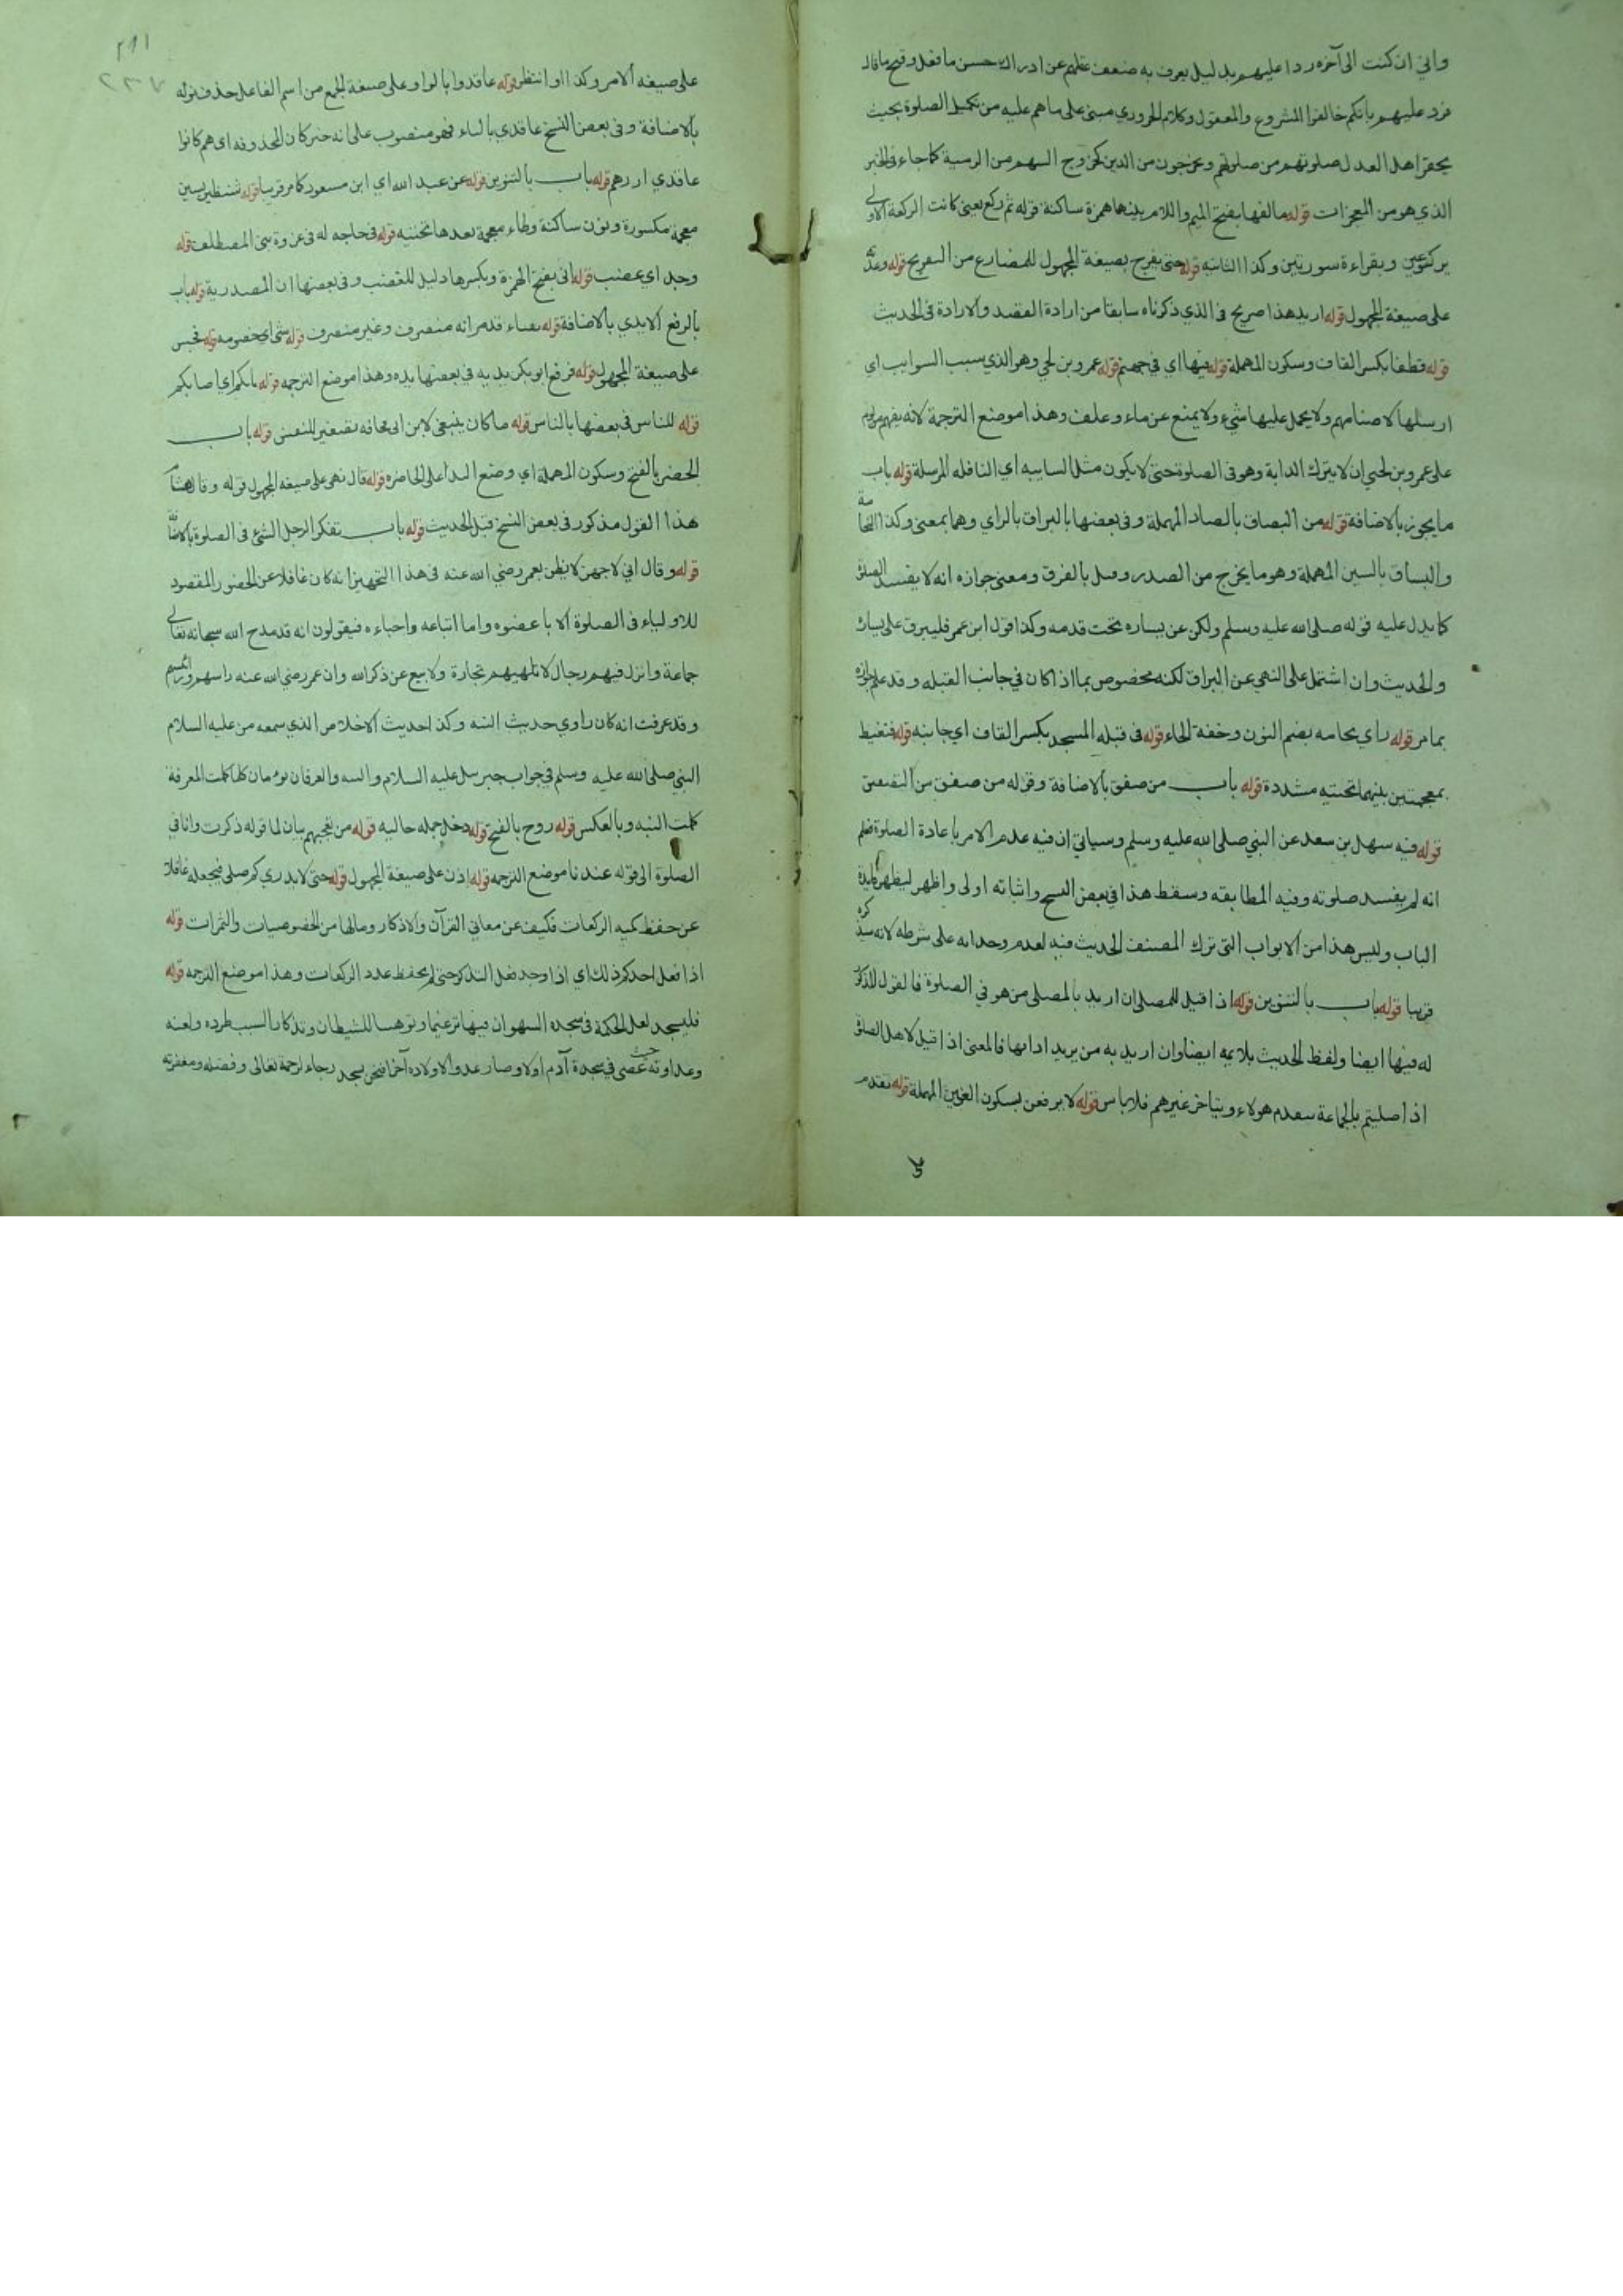 واني ان كنت الى آخره ردا عليهم بدليل يعرف به ضعف عقلهم عن ادراك حسن ما فعل وقبح ما قال
فرد عليهم بانكم خالفوا المشروع والمعقول وكلام الحروري مبني على ما هم عليه من تكميل الصلوة بحيث
يحقر اهل العدل صلوتهم من صلوتهم ويخرجون من الدين كخروج السهم من الرمية كما جاء في الخبر
الذي هو من المعجزات قوله مالفها بفتح الميم واللام بينهما همزة ساكنة قوله ثم ركع يعني كانت الركعة الاولى
بركوعين وبقراءة سورتين وكذا الثانية قوله حتى يفرج بصيغة المجهول للمضارع من التفريج قوله وعدته
على صيغة المجهول قوله اريد هذا صريح في الذي ذكرناه سابقا من ارادة القصد والارادة في الحديث
قوله قطفا بكسر القاف وسكون المهملة قوله فيها اي في جهنم قوله عمرو بن لحي وهو الذي سيب السوايب اي
ارسلها لاصنامهم ولا يحمل عليها شيء ولا يمنع عن ماء وعلف وهذا موضع الترجمة لانه يفهم من لوم
على عمرو بن لحي ان لا يترك الدابة وهو في الصلوة حتى لا يكون مثل السايبه اي النافله المرسلة قوله باب
ما يجوز بالاضافة قوله من البصاق بالصاد المهملة وفي بعضها بالبزاق بالزاي وهما بمعنى وكذا النخامة
والبساق بالسين المهملة وهو ما يخرج من الصدر وقيل بالفرق ومعنى جوازه انه لا يفسد الصلوة
كما يدل عليه قوله صلى الله عليه وسلم ولكن عن يساره تحت قدمه وكذا قول ابن عمر فليبزق على يساره
والحديث وان اشتمل على النهي عن البزاق لكنه مخصوص بما اذا كان في جانب القبله وقد علم جوازه
بما مر قوله راي نخامه بضم النون وخفة الخاء قوله في قبله المسجد بكسر القاف اي جانبه قوله فتغيظ
بمعجمتين بينهما تحتيه مشددة قوله باب من صفق بالاضافة وقوله من صفق من التصفيق
قوله فيه سهل بن سعد عن النبي صلى الله عليه وسلم وسياتي ان فيه عدم الامر باعادة الصلوة فعلم
انه لم يفسد صلوته وفيه المطابقه وسقط هذا في بعض النسخ واثباته اولى واظهر ليظهر فايدة
الباب وليس هذا من الابواب التي ترك المصنف الحديث فيه لعدم وجدانه على شرطه لانه سيذكره
قريبا قوله باب بالتنوين قوله اذا قيل للمصلي ان اريد بالمصلي من هو في الصلوة فالقول المذكور
له فيها ايضا ولفظ الحديث يلايمه ايضا وان اريد به من يريد اداءها فالمعنى اذا قيل لاهل الصلوة
اذا صليتم بالجماعة يتقدم هولاء ويتاخر غيرهم فلا باس قوله لا يرفعن بسكون العين المهملة قوله تقدم
على
٢٩١
٢٣٧
على صيغه الامر وكذا او انتظر قوله عاقدوا بالواو على صيغة الجمع من اسم الفاعل حذف نونه
بالاضافة وفي بعض النسخ عاقدي بالياء فهو منصوب على انه خبر كان المحذوفه اي هم كانوا
عاقدي ازرهم قوله باب بالتنوين قوله عن عبد الله اي ابن مسعود كما مر قريبا قوله شنظير بشين
معجمة مكسورة ونون ساكنة وظاء معجمة بعدها تحتيه قوله في حاجه له في غزوة بني المصطلق قوله
وجد اي غضب قوله اني بفتح الهمزة وبكسرها دليل للغضب وفي بعضها ان المصدرية قوله باب
بالرفع الايدي بالاضافة قوله بقباء قد مر انه منصرف وغير منصرف قوله شي اي خصومه قوله فحبس
على صيغة المجهول قوله فرفع ابوبكر يديه في بعضها يده وهذا موضع الترجمه قوله نابكم اي اصابكم
قوله للناس في بعضها بالناس قوله ما كان ينبغي لابن ابي قحافه تصغير للنفس قوله باب
الخصر بالفتح وسكون المهملة اي وضع اليد على الخاصره قوله قال نهي على صيغه المجهول قوله وقال هشام
هذا القول مذكور في بعض النسخ قبل الحديث قوله باب تفكر الرجل الشيء في الصلوة بالاضافة
قوله وقال اني لاجهز لا يظن بعمر رضي الله عنه في هذا التجهيز انه كان غافلا عن الحضور المقصود
للاولياء في الصلوة الا باغضوه واما اتباعه واحباءه فيقولون انه قد مدح الله سبحانه تعالى
جماعة وانزل فيهم رجال لا تلهيهم تجارة ولا بيع عن ذكر الله وان عمر رضي الله عنه راسهم ورئيسهم
وقد عرفت انه كان راوي حديث النيه وكذا حديث الاخلاص الذي سمعه من عليه السلام
النبي صلى الله عليه وسلم في جواب جبرييل عليه السلام والنيه والعرفان توءمان كلما كملت المعرفة
كملت النيه وبالعكس قوله روح بالفتح قوله دخل جمله حاليه قوله من تعجبهم بيان لما قوله ذكرت وانا في
الصلوة الى قوله عندنا موضع الترجمه قوله اذن على صيغة المجهول قوله حتى لا يدري كم صلى فيجعله غافلا
عن حفظ كميه الركعات فكيف عن معاني القرآن والاذكار ومالها من الخصوصيات والثمرات قوله
اذا فعل احدكم ذلك اي اذا وجد فعل التذكر حتى لم يحفظ عدد الركعات وهذا موضع الترجمه قوله
فليسجد لعل الحكمة في سجده السهو ان فيها ترغيما وتوهينا للشيطان وتذكارا لسبب طرده ولعنه
وعداوته حيث عصى في سجدة آدم اولا وصار عدوا لاولاده آخرا فنحن نسجد رجاء لرحمة تعالى وفضله ومغفرته